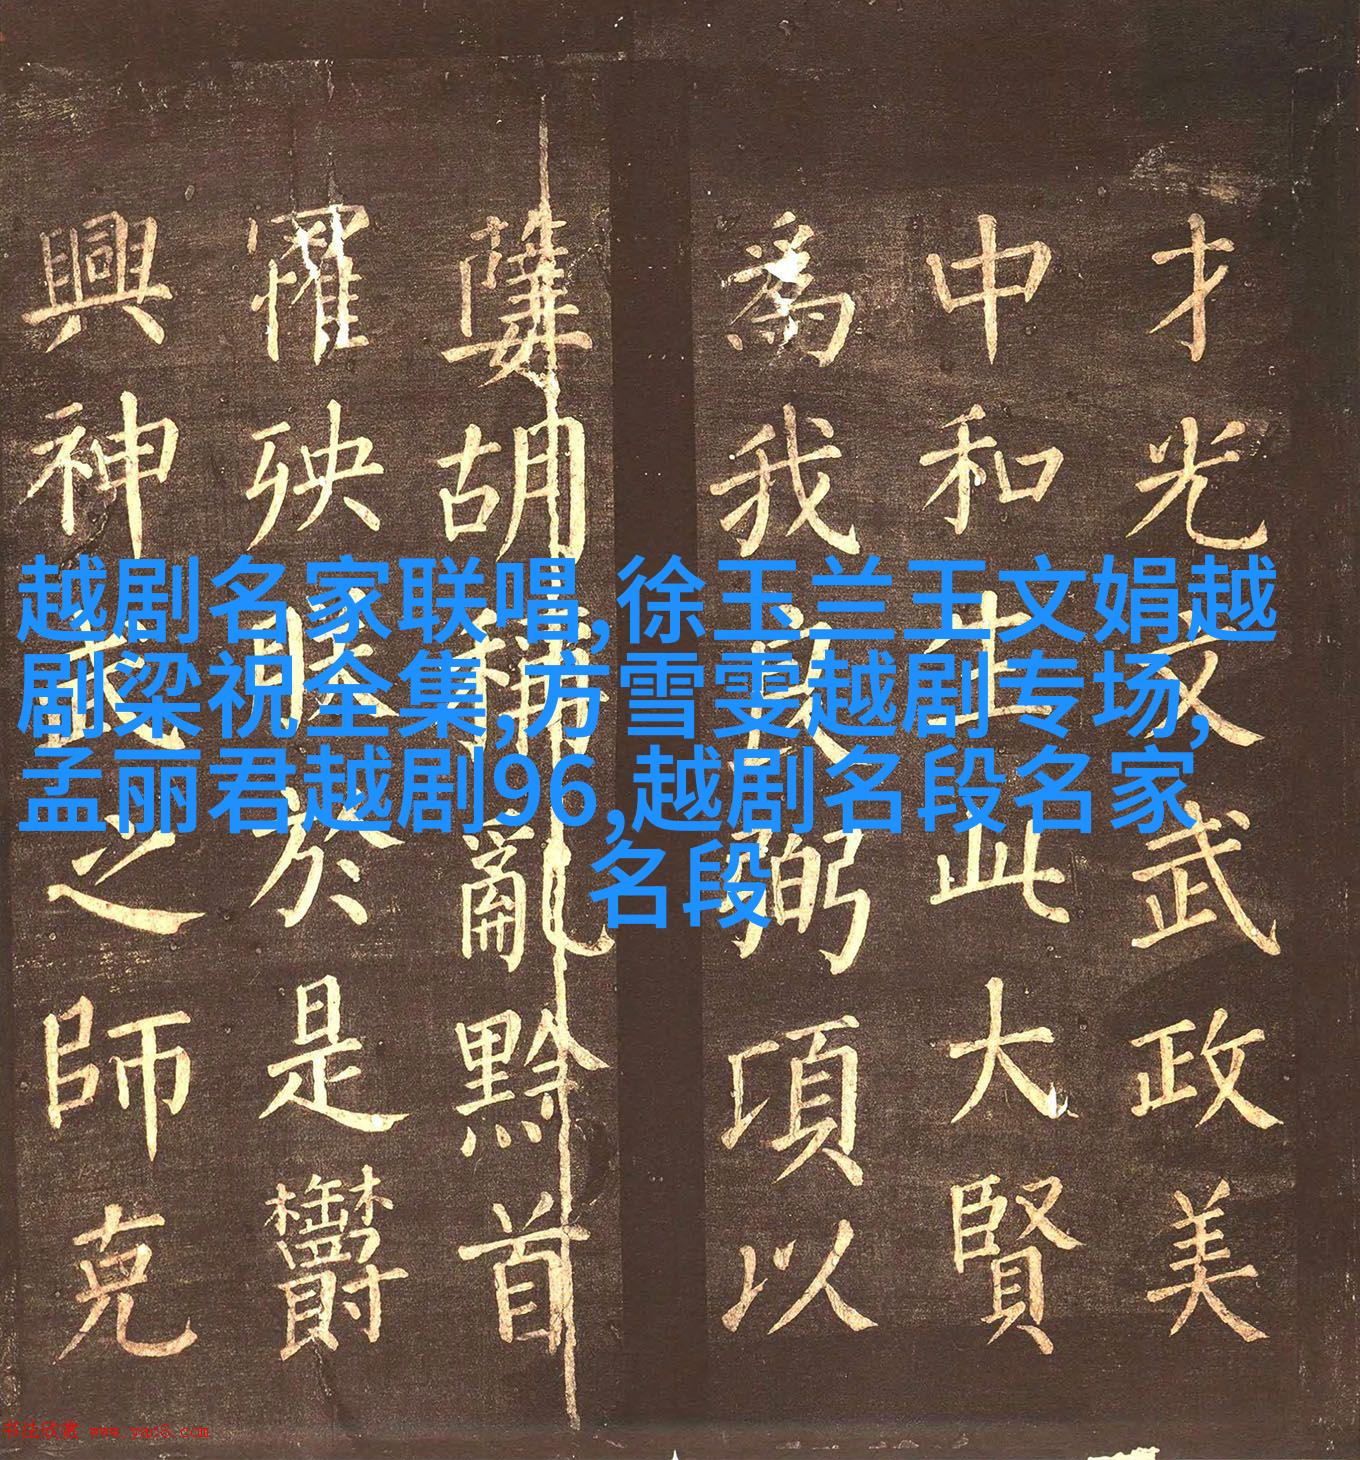 才光文武政美
中和生此大賢
為我良弼項以
胡稱亂黔首
罹殃於是欝
興神武之師克
越剧名家联唱,徐玉兰王文娟越
剧梁祝全集,方雪雯越剧专场,
孟丽君越剧96,越剧名段名家
名段
书法欣赏 www.yac8.com